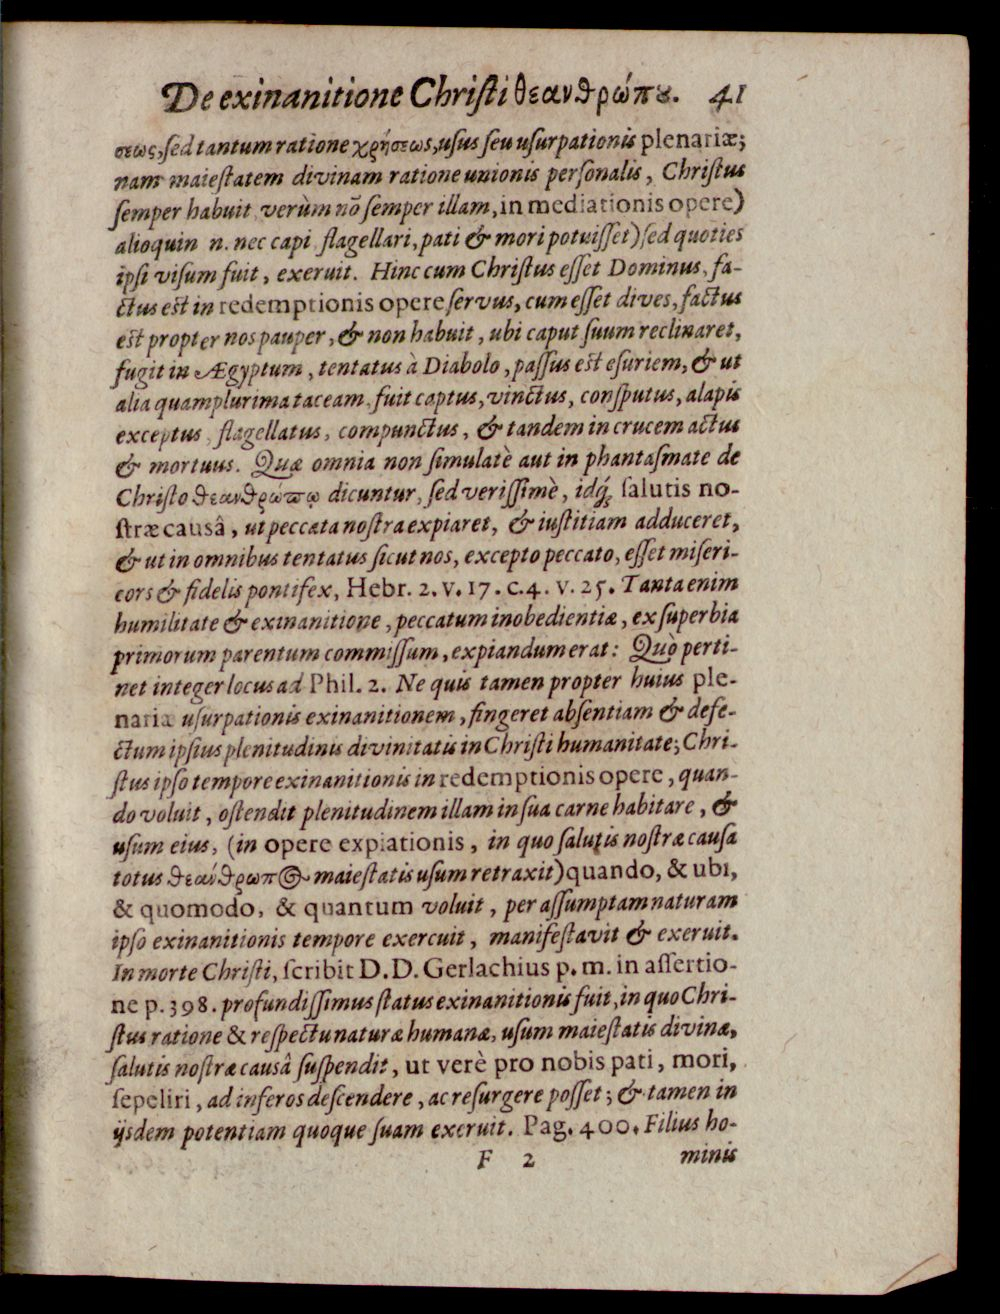 De exinanitione Christi θεανθρώπȣ. 41
σεως, sed tantum ratione χρήσεως, usus seu usurpationis plenariæ;
nam maiestatem divinam ratione unionis personalis, Christus
semper habuit, verùm nō semper illam, in mediationis opere)
alioquin n. nec capi flagellari, pati & mori potuisset) sed quoties
ipsi visum fuit, exeruit. Hinc cum Christus esset Dominus, fa-
ctus est in redemptionis opere servus, cum esset dives, factus
est propter nos pauper, & non habuit, ubi caput suum reclinaret,
fugit in Ægyptum, tentatus à Diabolo, passus est esuriem, & ut
alia quamplurima taceam, fuit captus, vinctus, consputus, alapis
exceptus, flagellatus, compunctus, & tandem in crucem actus
& mortuus. Quæ omnia non simulatè aut in phantasmate de
Christo θεανθρώπῳ dicuntur, sed verissimè, idq́; salutis no-
stræ causâ, ut peccata nostra expiaret, & iustitiam adduceret,
& ut in omnibus tentatus sicut nos, excepto peccato, esset miseri-
cors & fidelis pontifex, Hebr. 2. v. 17. c. 4. v. 25. Tanta enim
humilitate & exinanitione, peccatum inobedientiæ, ex superbia
primorum parentum commissum, expiandum erat: Quò perti-
net integer locus ad Phil. 2. Ne quis tamen propter huius ple-
nariæ usurpationis exinanitionem, fingeret absentiam & defe-
ctum ipsius plenitudinis divinitatis in Christi humanitate; Chri-
stus ipso tempore exinanitionis in redemptionis opere, quan-
do voluit, ostendit plenitudinem illam in sua carne habitare, &
usum eius, (in opere expiationis, in quo salutis nostræ causa
totus θεάνθρωπος maiestatis usum retraxit) quando, & ubi,
& quomodo, & quantum voluit, per assumptam naturam
ipso exinanitionis tempore exercuit, manifestavit & exeruit.
In morte Christi, scribit D. D. Gerlachius p. m. in assertio-
ne p. 398. profundissimus status exinanitionis fuit, in quo Chri-
stus ratione & respectu naturæ humanæ, usum maiestatis divinæ,
salutis nostræ causâ suspendit, ut verè pro nobis pati, mori,
sepeliri, ad inferos descendere, ac resurgere posset; & tamen in
ijsdem potentiam quoque suam exeruit. Pag. 400. Filius ho-
F 2 minis